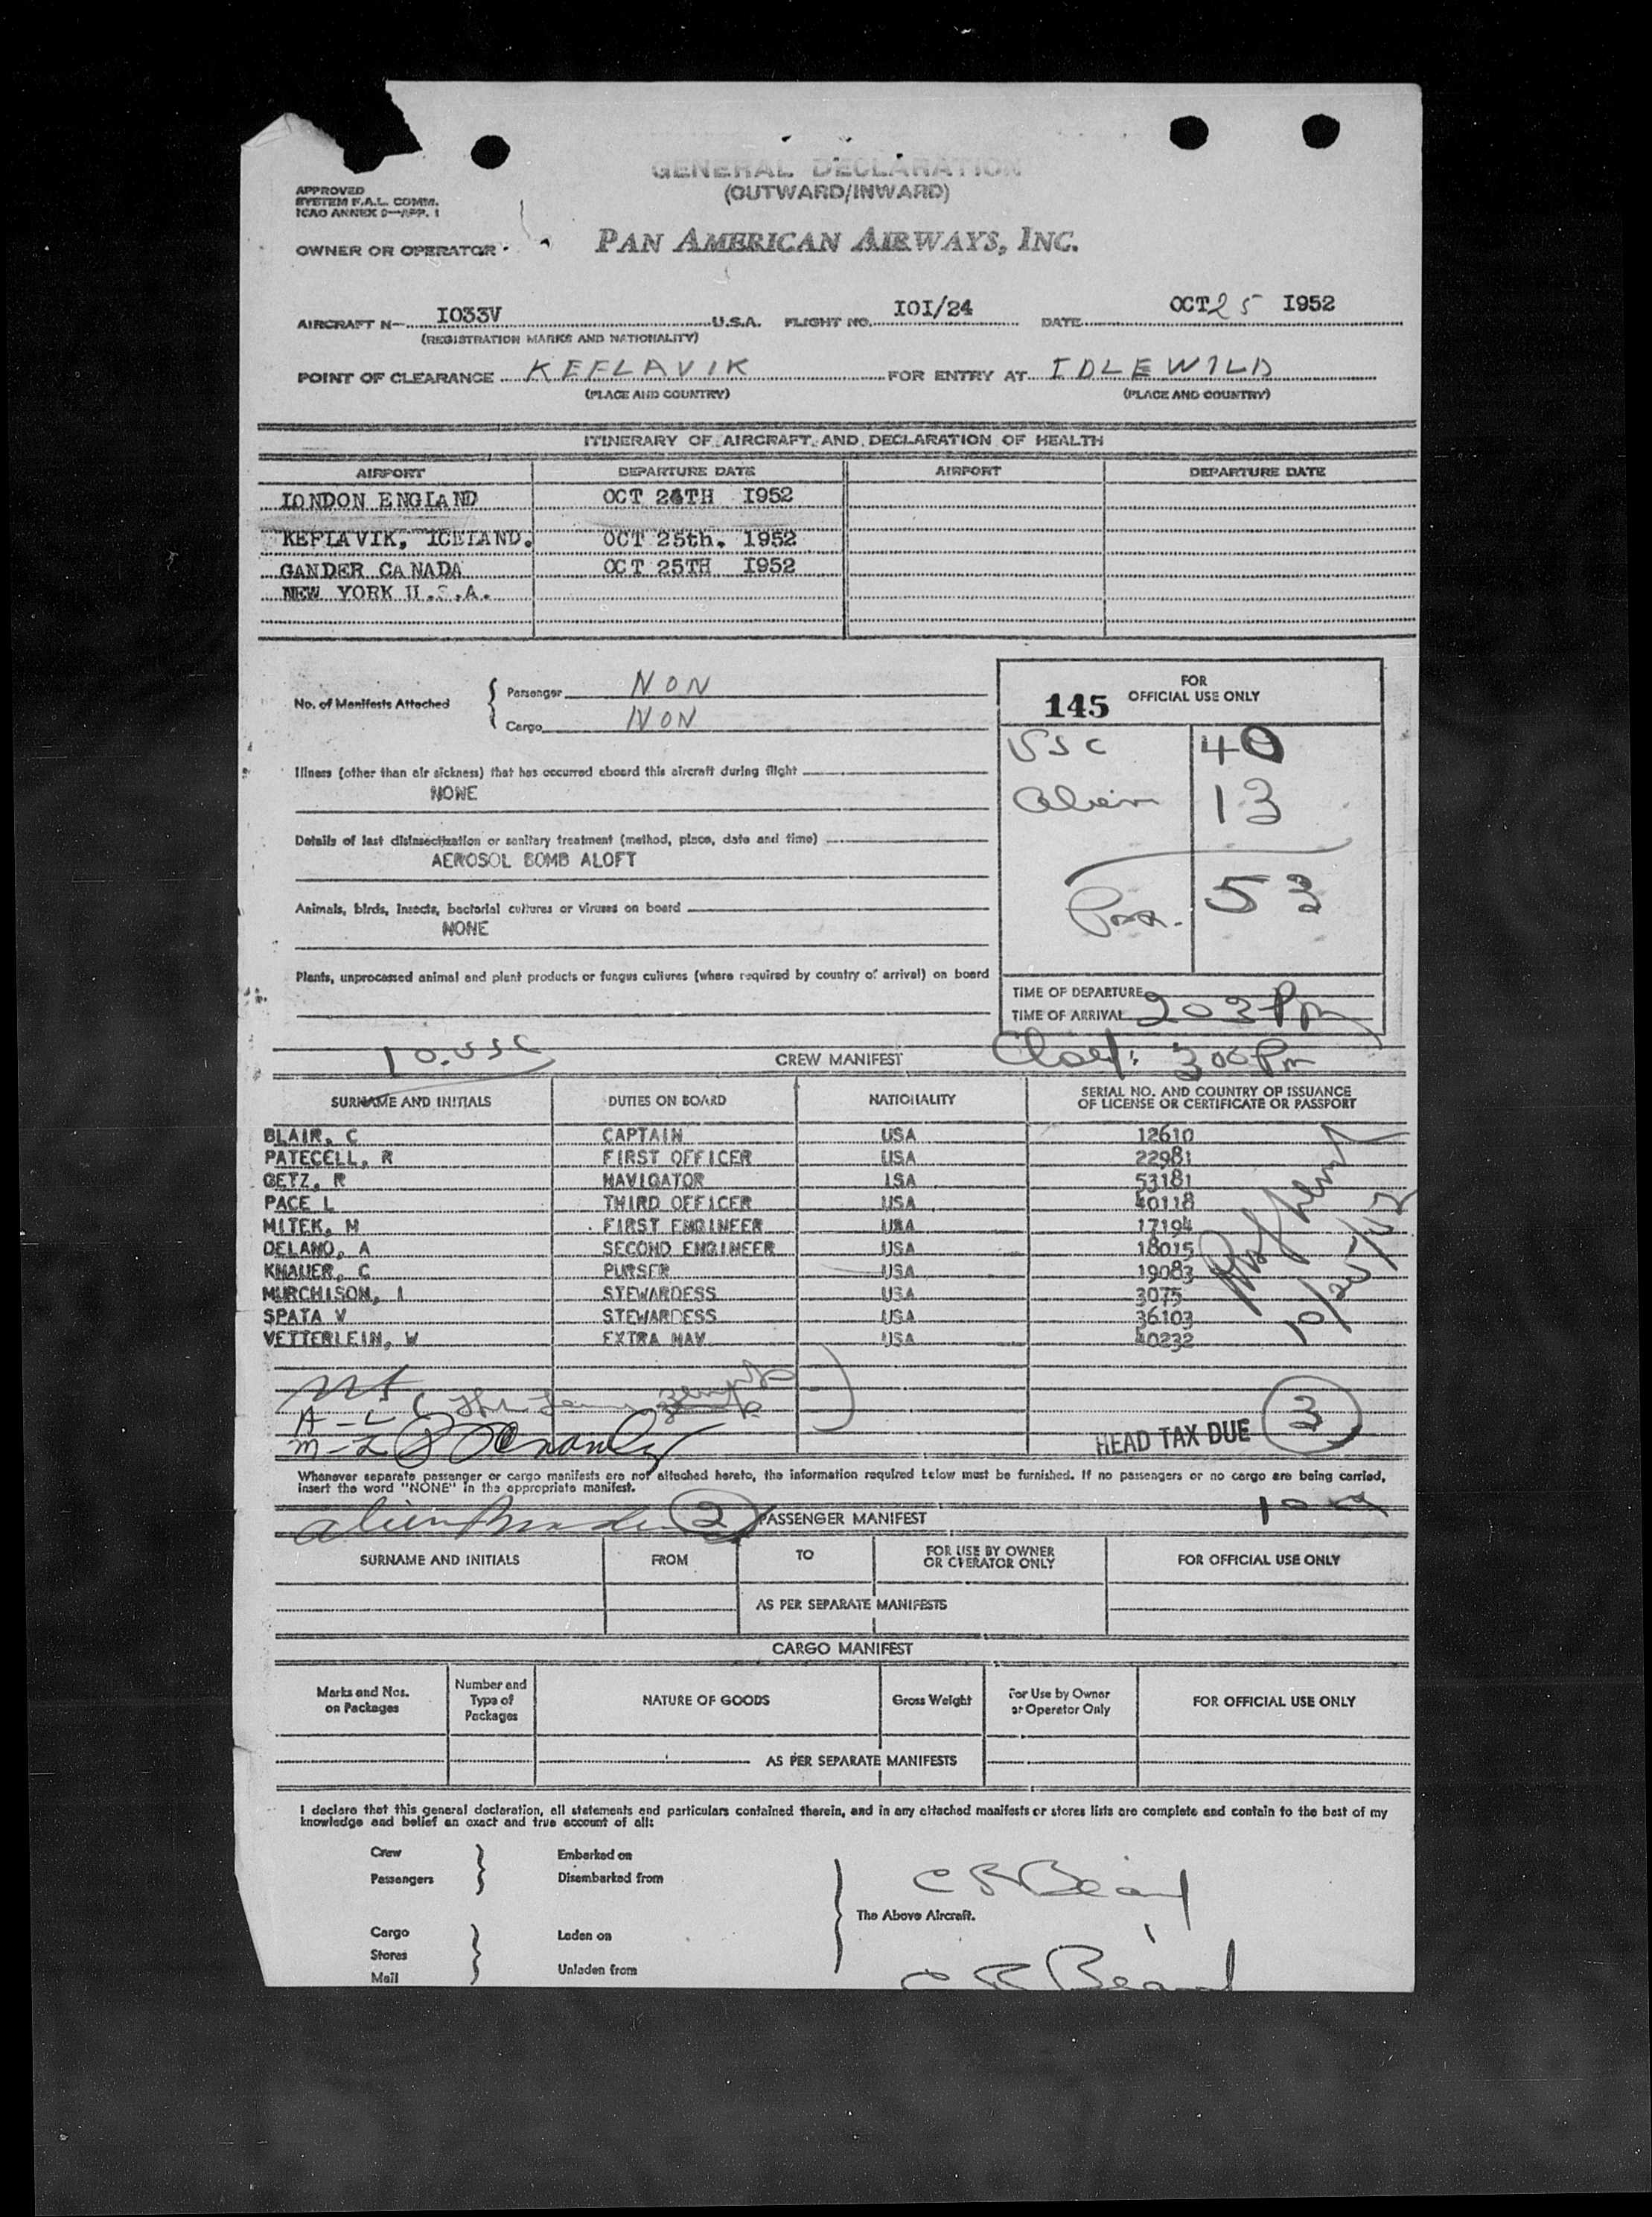 GENERAL DECLARATION
(OUTWARD/INWARD)
APPROVED
SYSTEM F.A.L. COMM.
ICAO ANNEX 9—APP. 1
OWNER OR OPERATOR
PAN AMERICAN AIRWAYS, INC.
AIRCRAFT N— I033V U.S.A. FLIGHT NO. I0I/24 DATE OCT 25 I952
(REGISTRATION MARKS AND NATIONALITY)
POINT OF CLEARANCE KEFLAVIK FOR ENTRY AT IDLEWILD
(PLACE AND COUNTRY) (PLACE AND COUNTRY)
ITINERARY OF AIRCRAFT AND DECLARATION OF HEALTH
AIRPORT DEPARTURE DATE AIRPORT DEPARTURE DATE
LONDON ENGLAND OCT 24TH I952
KEFLAVIK, ICELAND. OCT 25th. 1952
GANDER CANADA OCT 25TH I952
NEW YORK U.S.A.
No. of Manifests Attached
Passenger NON
Cargo NON
FOR
145 OFFICIAL USE ONLY
USC 40
Alien 13
Pax. 53
Illness (other than air sickness) that has occurred aboard this aircraft during flight
NONE
Details of last disinsectization or sanitary treatment (method, place, date and time)
AEROSOL BOMB ALOFT
Animals, birds, insects, bacterial cultures or viruses on board
NONE
Plants, unprocessed animal and plant products or fungus cultures (where required by country of arrival) on board
TIME OF DEPARTURE
TIME OF ARRIVAL 203 Pm
10. USC CREW MANIFEST 300 Pm
SURNAME AND INITIALS DUTIES ON BOARD NATIONALITY SERIAL NO. AND COUNTRY OF ISSUANCE
OF LICENSE OR CERTIFICATE OR PASSPORT
BLAIR, C CAPTAIN USA 12610
PATECELL, R FIRST OFFICER USA 22981
GETZ, R NAVIGATOR USA 53181
PACE L THIRD OFFICER USA 40118
MITEK, M FIRST ENGINEER USA 17194
DELANO, A SECOND ENGINEER USA 18015
KNAUER, C PURSER USA 19083
MURCHISON, I STEWARDESS USA 3075
SPATA V STEWARDESS USA 36103
VETTERLEIN, W EXTRA NAV USA 40232
10/25/52
A-L
M-Z
HEAD TAX DUE 3
Whenever separate passenger or cargo manifests are not attached hereto, the information required below must be furnished. If no passengers or no cargo are being carried,
insert the word "NONE" in the appropriate manifest.
Alien 2 PASSENGER MANIFEST
SURNAME AND INITIALS FROM TO FOR USE BY OWNER
OR OPERATOR ONLY FOR OFFICIAL USE ONLY
AS PER SEPARATE MANIFESTS
CARGO MANIFEST
Marks and Nos.
on Packages
Number and
Type of
Packages
NATURE OF GOODS
Gross Weight
For Use by Owner
or Operator Only
FOR OFFICIAL USE ONLY
AS PER SEPARATE MANIFESTS
I declare that this general declaration, all statements and particulars contained therein, and in any attached manifests or stores lists are complete and contain to the best of my
knowledge and belief an exact and true account of all:
Crew Embarked on
Passengers Disembarked from
The Above Aircraft.
Cargo Laden on
Stores
Mail Unladen from